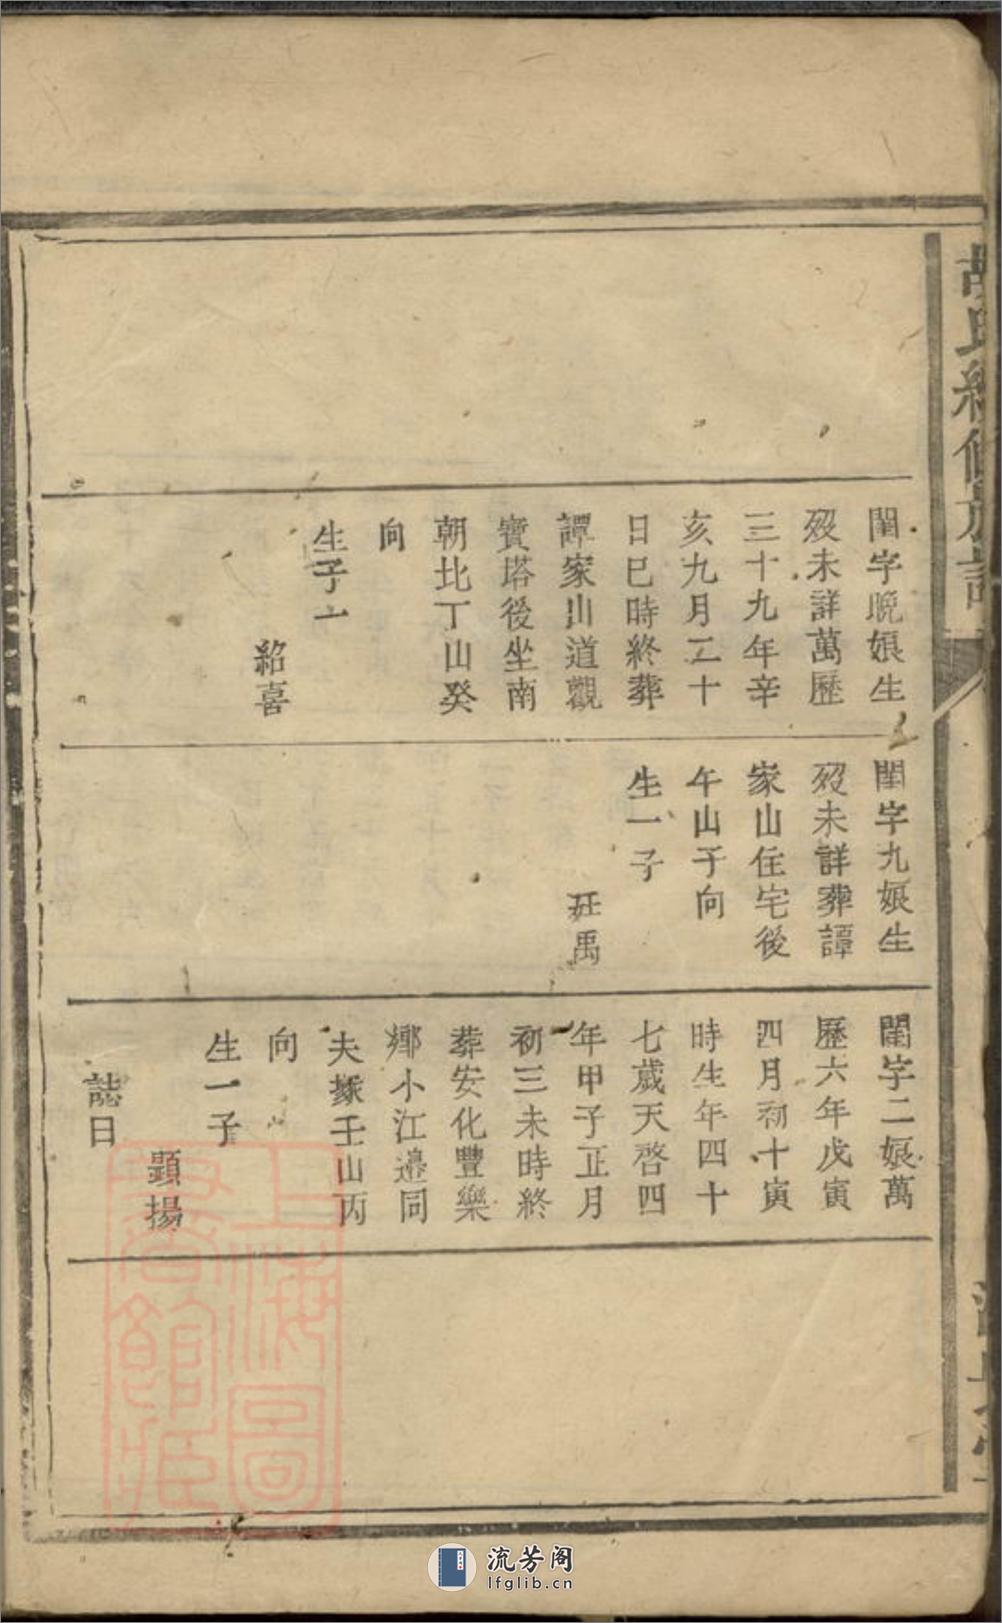 胡氏續修族譜
閨字晩娘生
歿未詳萬歷
三十九年辛
亥九月二十
日巳時終葬
譚家山道觀
寶塔後坐南
朝北丁山癸
向
生子一
紹喜
閨字九娘生
歿未詳葬譚
家山住宅後
午山子向
生一子
廷禹
閨字二娘萬
歷六年戊寅
四月初十寅
時生年四十
七歲天啓四
年甲子正月
初三未時終
葬安化豐樂
鄉小江邉同
夫塚壬山丙
向
生一子
顕揚
誌曰
上海圖
書館藏
流芳阁
lfglib.cn